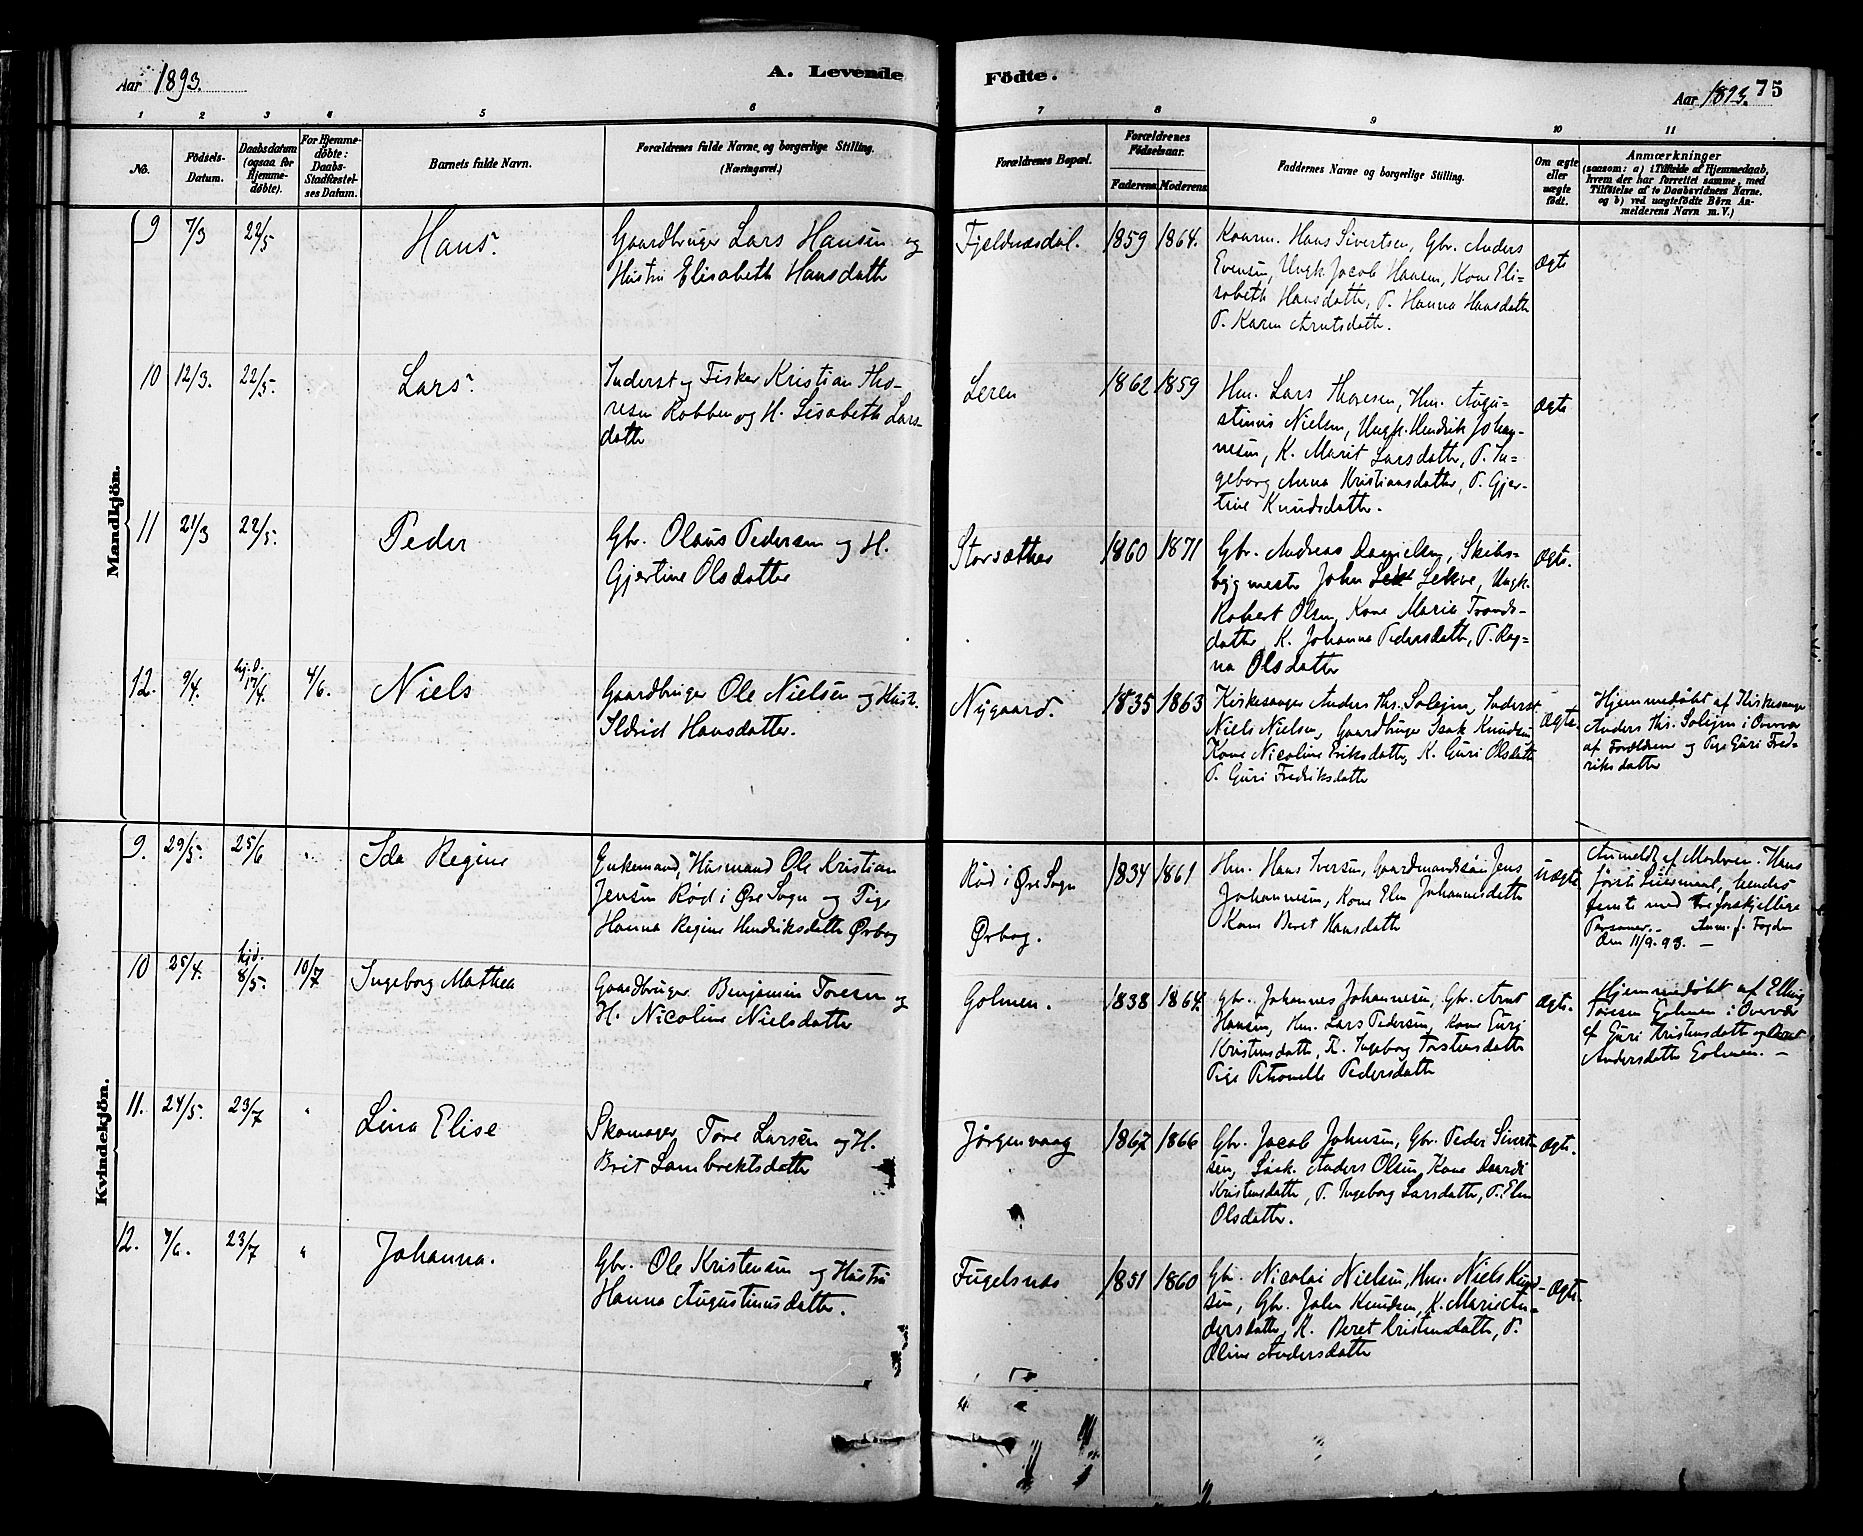 Aar 1893.
A. Levende Födte.
Aar 1893. 75
1 2 3 4 5 6 7 8 9 10 11
No.
Födsels-
Datum.
Daabsdatum
(ogsaa for
Hjemme-
døbte).
For Hjemme-
døbte:
Daabs-
Stadfæstel-
ses Datum.
Barnets fulde Navn.
Forældrenes fulde Navne og borgerlige Stilling.
(Næringsvei.)
Forældrenes Bopæl.
Forældrenes
Födselsaar.
Faderens Moderens
Faddernes Navne og borgerlige Stilling.
Om ægte
eller
uægte
født.
Anmærkninger
(saasom: a) i Tilfælde af Hjemmedaab,
hvem der har forrettet samme, med
Tilføielse af to Daabsvidners Navne.
og b) ved uægtefødte Børn An-
melderens Navn m. V.)
Mandkjön.
9 7/3 22/5 Hans.
Gaardbruger Lars Hansen og
Hustru Elisabeth Hansdatter
Fjeldnæsdal. 1859 1864.
Kaarm. Hans Sivertsen, Gbr. Anders
Evensen, Ungk. Jacob Hansen, Kone Eli-
sabeth Hansdatter, P. Hanna Hansdatter
P. Karen Arntsdatter.
Ægte
10 12/3. 22/5. Lars.
Inderst og Fisker Kristian Tho-
resen Kobben og H. Lisabeth Lars-
datter
Leren 1862 1859
Hm. Lars Thoresen, Hm. Augu-
stinus Nielsen, Ungk. Hendrik Johan-
nesen, K. Marit Larsdatter, P. In-
geborg Anna Kristiansdatter, P. Gjer-
tine Knudsdatter.
Ægte
11 21/3 22/5. Peder
Gbr. Olaus Pedersen og H.
Gjertine Olsdatter
Storsæther 1860 1871
Gbr. Andreas Danielsen, Skibs-
bygmester John Lekve, Ungk.
Robert Olsen, Kone Marie Tronds-
datter, K. Johanna Pedersdatter, P. Rag-
na Olsdatter
Ægte.
12. 9/4. hj. d. 17/4. 4/6. Niels
Gaardbruger Ole Nielsen og Hust.
Ildrid Hansdatter.
Nygaard. 1835 1863
Kirkesanger Anders Ths. Solejm, Inderst
Niels Nielsen, Gaardbruger Isak Knudsen
Kone Nicoline Eriksdatter, K. Guri Olsdatter
P. Guri Fredriksdatter
Ægte.
Hjemmedøbt af Kirkesanger
Anders Ths. Solejm i Overvær
af Forældrene og Pige Guri Fred-
riksdatter
Kvindekjön.
9. 29/5. 25/6 Ida Regine
Enkemand, Husmand Ole Kristian
Jensen Rød i Øre Sogn og Pige
Hanna Regine Hendriksdatter Ørbog
Rød i Øre Sogn
Ørbog.
1834 1861
Hm. Hans Iversen, Gaardmandssøn Jens
Johannesen, Kone Elen Johannesdatter
Kone Beret Hansdatter
Uægte
Anmeldt af Moderen. Hans
første Leiermaal, hendes
femte med tre forskjellige
Personer. Anm. f. Fogden
den 11/9. 93. —
10 25/4. hjd. 8/5. 10/7 Ingeborg Mathea
Gaardbruger Benjamin Toresen og
H. Nicoline Nielsdatter
Golmen. 1838 1864.
Gbr. Johannes Johannesen, Gbr. Arnt
Hansen, Hm. Lars Pedersen, Kone Guri
Kristensdatter, K. Ingeborg Torstensdatter
Pige Petronelle Pedersdatter
Ægte.
Hjemmedøbt af Elling
Toresen Golmen i Overvær
af Guri Kristensdatter og Beret
Andersdatter Golmen. —
11. 24/5. 23/7 " Lina Elise
Skomager Tore Larsen og H.
Brit Lambrektsdatter
Jørgenvaag 1867 1866
Gbr. Jacob Johnsen, Gbr. Peder Sivert-
sen, Anders Olsen, Kone
Kristensdatter, P. Ingeborg Larsdatter, P. Elen
Olsdatter.
Ægte.
12. 7/6. 23/7 " Johanna.
Gbr. Ole Kristensen og Hustru
Hanna Augustinusdatter.
Fugelsnæs 1851 1860
Gbr. Nicolai Nielsen, Hm. Niels Knud-
sen, Gbr. John Knudsen, K. Marie An-
dersdatter, K. Beret Kristensdatter, P.
Oline Andersdatter
Ægte.